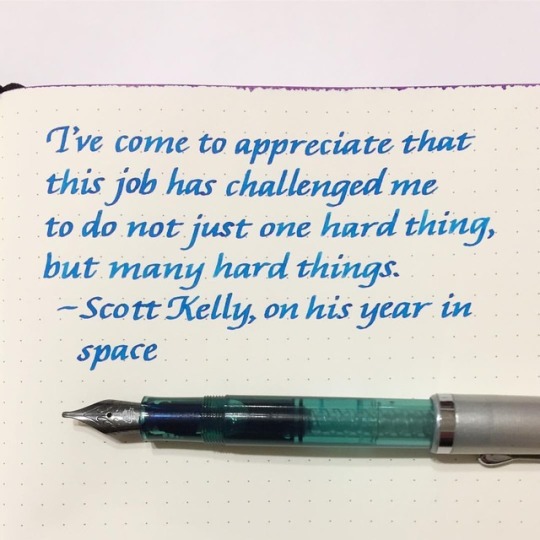 I've come to appreciate that
this job has challenged me
to do not just one hard thing,
but many hard things.
-Scott Kelly, on his year in
space